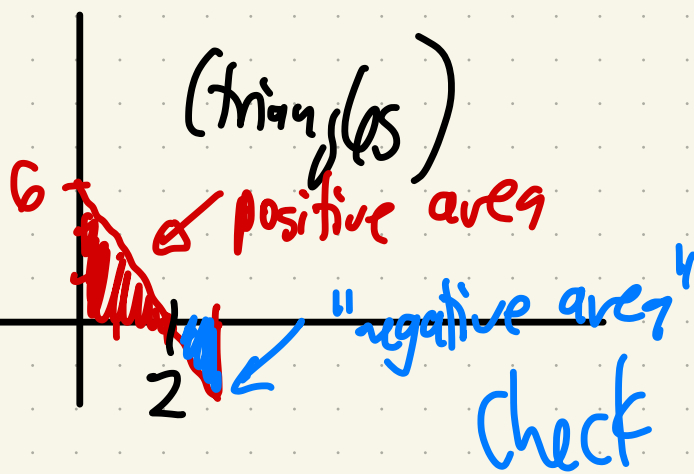 (triangles)
6
positive area
"negative area"
2
check